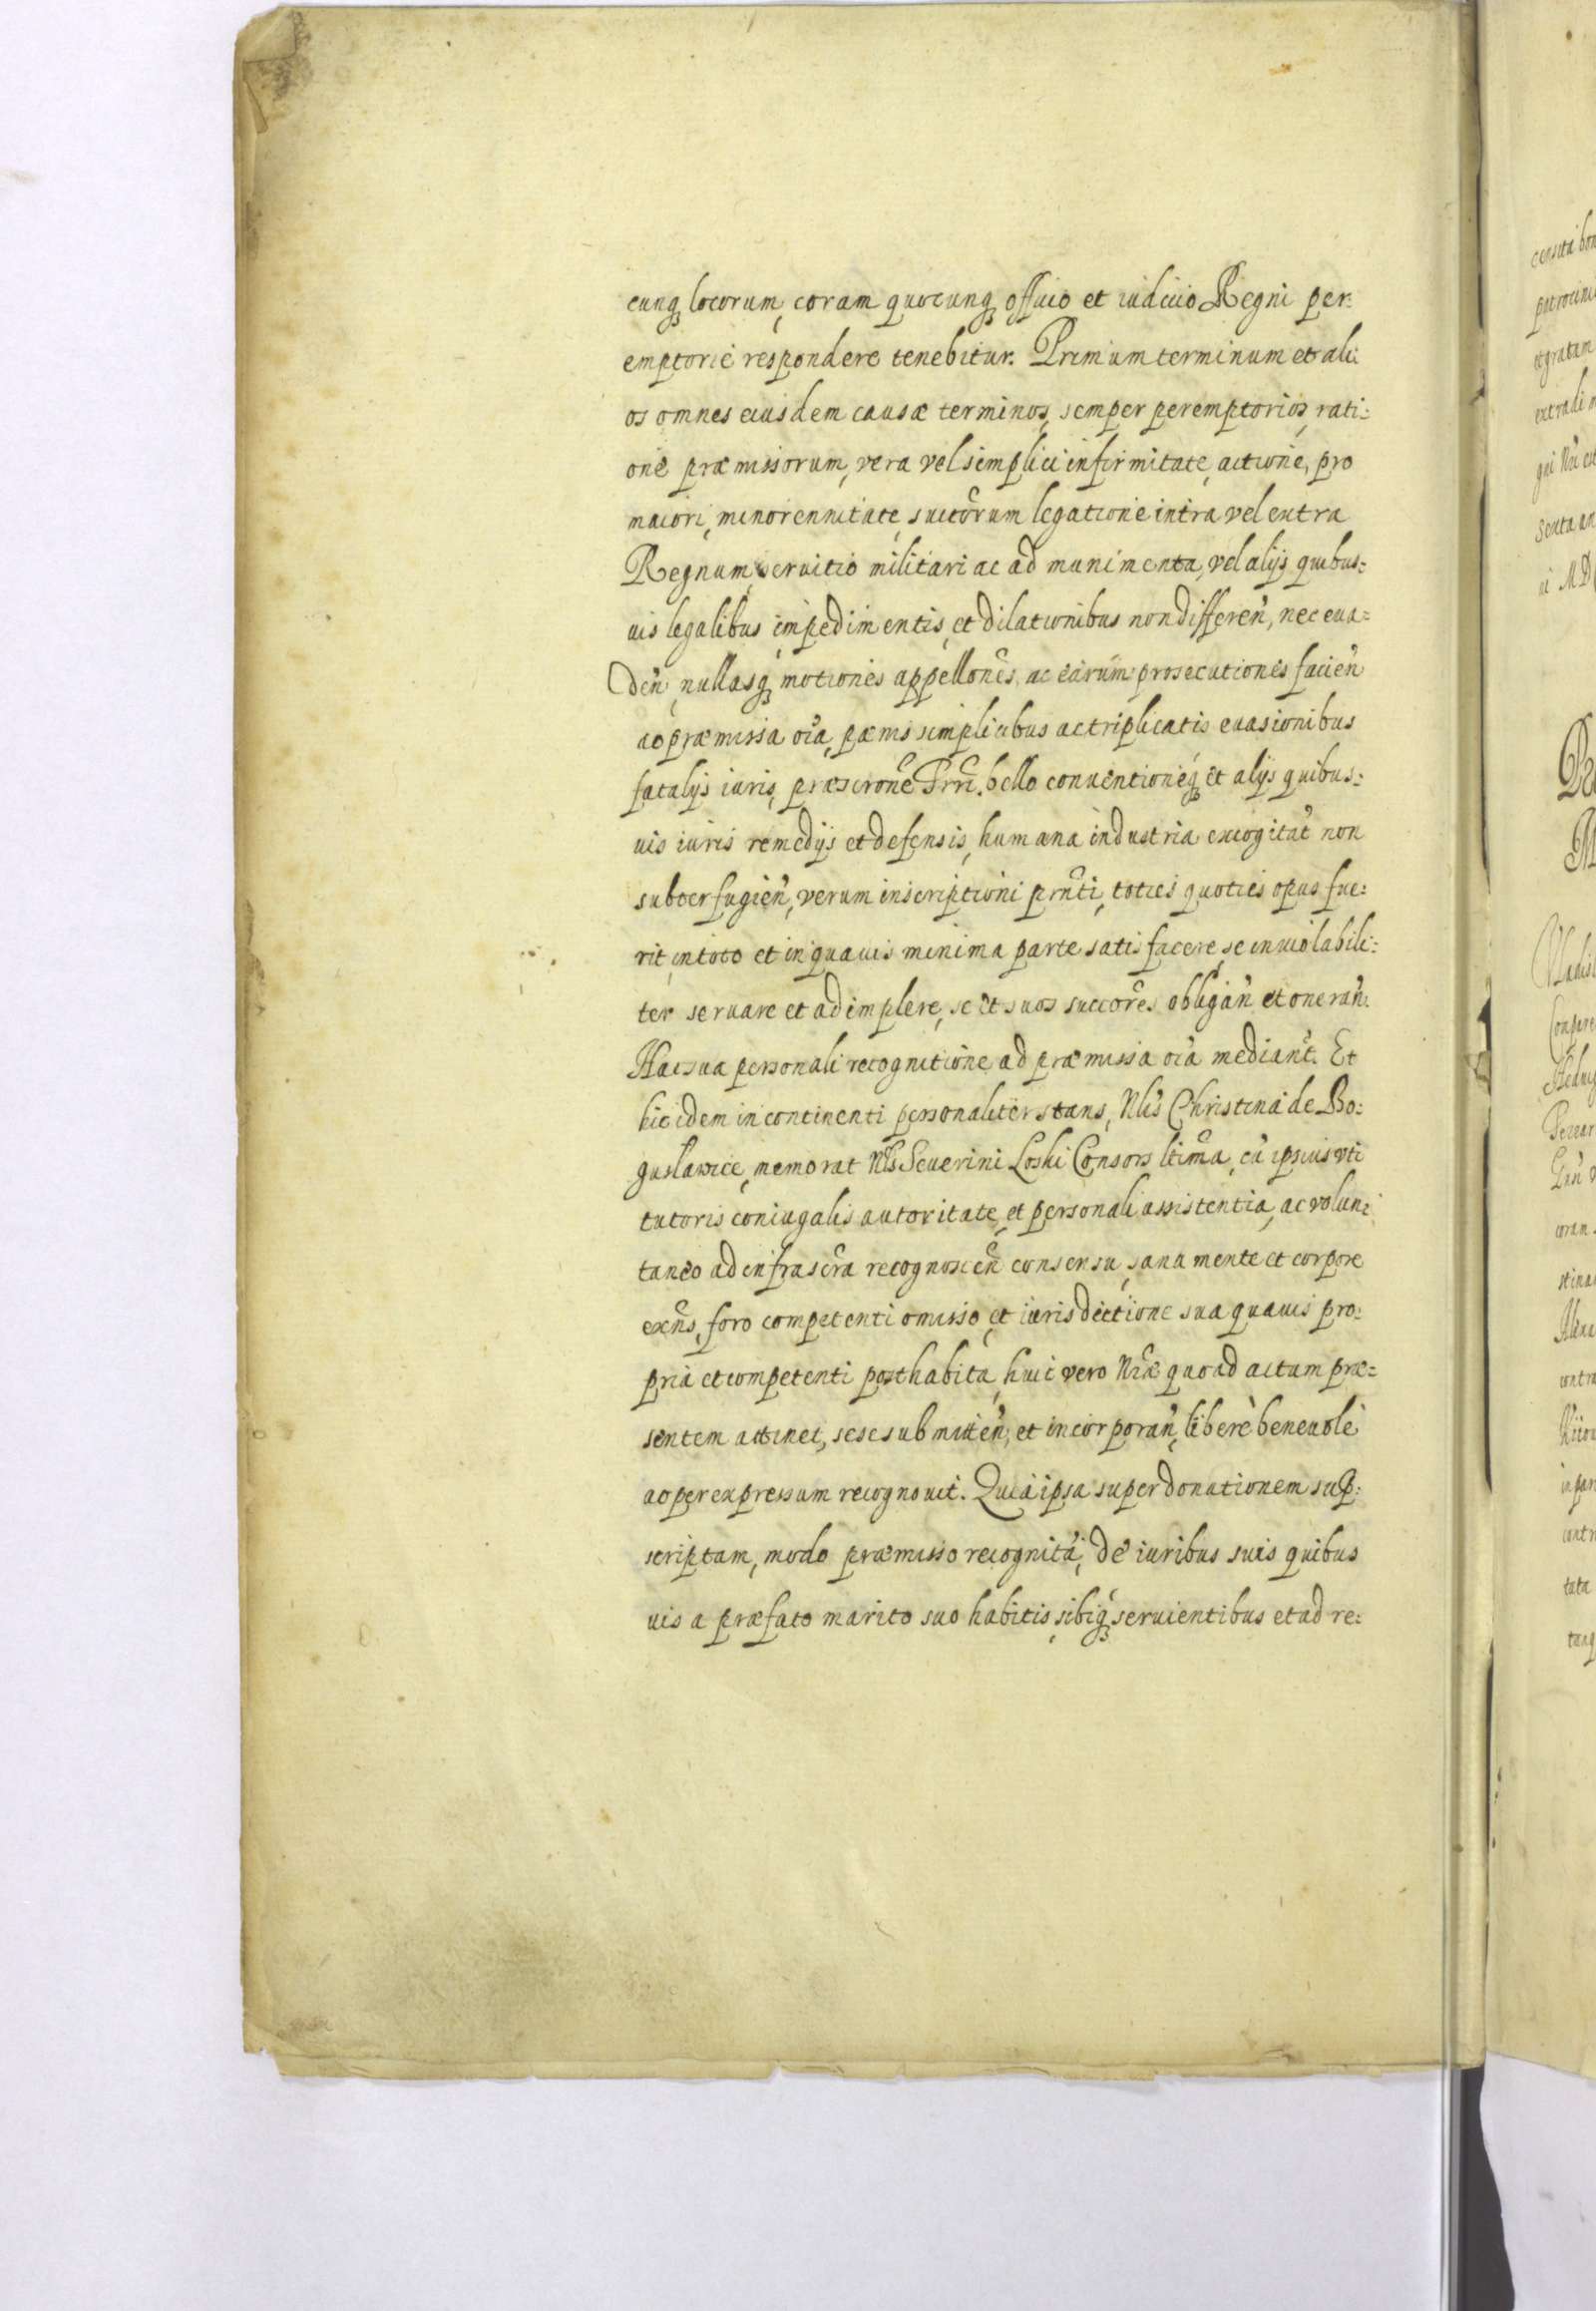 cunq locorum, coram quocunq officio et iudicio Regni per:
emptorie respondere tenebitur. Primum terminum et ali:
os omnes eiusdem causæ terminos, semper peremptorios, rati:
one præmissorum, vera vel simplici infirmitate, actione, pro
maiori, minorennitate, suctorum legatione intra vel extra
Regnum, seruitio militari ac ad munimenta, vel alijs quibus:
uis legalibus impedimentis, et dilationibus non differen̄, nec eua=
den̄, nullasq motiones appellōnes, ac earum prosecutiones facien̄
ac præmissa oīa, pænis simplicibus ac triplicatis euasionibus
fatalijs iuris, præscrōne Trrē. bello conuentioneq et alijs quibus:
uis iuris remedijs et defensis, humana industria excogitat̄ non
subterfugien̄, verum inscriptioni prn̄ti, toties quoties opus fue:
rit, in toto et in quauis minima parte satisfacere, se inuiolabili:
ter seruare et adimplere, se et suos succōres obligan̄ et oneran̄.
Hac sua personali recognitione ad præmissa oīa median̄t. Et
hic idem in continenti personaliter stans, Nlis Christina de Bo:
guslawice, memorat Nlis Seuerini Loski Consors ltīma, cū ipsius vti
tutoris coniugalis autoritate, et personali assistentia, ac volun:
taneo ad infrascrā recognoscen̄ consensu, sana mente et corpore
exn̄s, foro competenti omisso, et iurisdictione sua quauis pro:
pria et competenti posthabita, huic vero Nræ quoad actum præ=
sentem attinet, sese submitten̄, et incorporan̄, liberè beneuolè
ac per expressum recognouit. Quia ipsa super donationem sup:
scriptam, modo præmisso recognitā, de iuribus suis quibus
uis a præfato marito suo habitis, sibiq seruientibus et ad re: